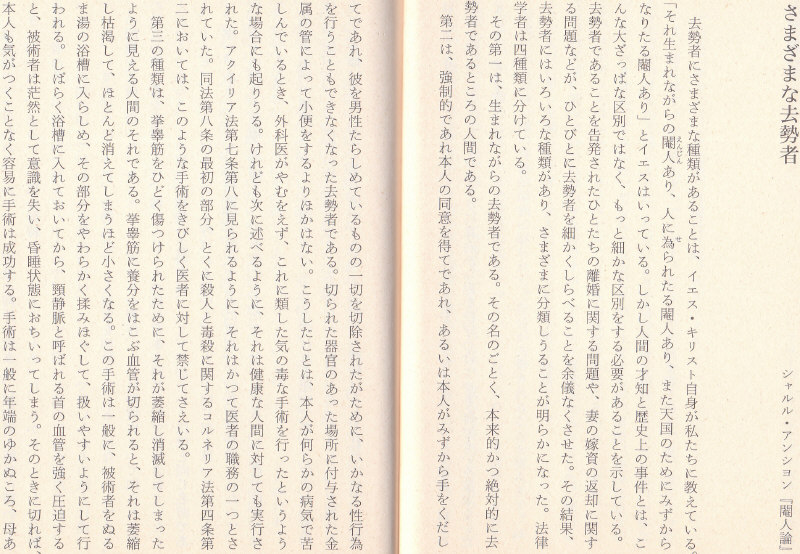 さまざまな去勢者
シャルル・アンション『閹人論』
去勢者にさまざまな種類があることは、イエス・キリスト自身が私たちに教えている。
「それ生まれながらの閹人あり、人に為られたる閹人あり、また天国のためにみずから
なりたる閹人あり」とイエスはいっている。しかし人間の才知と歴史上の事件とは、こ
んな大ざっぱな区別ではなく、もっと細かな区別をする必要があることを示している。
去勢者であることを告発されたひとたちの離婚に関する問題や、妻の嫁資の返却に関す
る問題などが、ひとびとに去勢者を細かくしらべることを余儀なくさせた。その結果、
去勢者にはいろいろな種類があり、さまざまに分類しうることが明らかになった。法律
学者は四種類に分けている。
その第一は、生まれながらの去勢者である。その名のごとく、本来的かつ絶対的に去
勢者であるところの人間である。
第二は、強制的であれ本人の同意を得てであれ、あるいは本人がみずから手をくだし
てであれ、彼を男性たらしめているものの一切を切除されたがために、いかなる性行為
を行うこともできなくなった去勢者である。切られた器官のあった場所に付与された金
属の管によって小便をするよりほかはない。こうしたことは、本人が何らかの病気で苦
しんでいるとき、外科医がやむをえず、これに類した気の毒な手術を行ったというよう
な場合にも起りうる。けれども次に述べるように、それは健康な人間に対しても実行さ
れた。アクイリア法第七条第八に見られるように、それはかつて医者の職務の一つとさ
れていた。同法第八条の最初の部分、とくに殺人と毒殺に関するコルネリア法第四条第
二においては、このような手術をきびしく医者に対して禁じてさえいる。
第三の種類は、挙睾筋をひどく傷つけられたために、それが萎縮し消滅してしまった
ように見える人間のそれである。挙睾筋に養分をはこぶ血管が切られると、それは萎縮
し枯渇して、ほとんど消えてしまうほど小さくなる。この手術は一般に、被術者をぬる
ま湯の浴槽に入らしめ、その部分をやわらかく揉みほぐして、扱いやすいようにして行
われる。しばらく浴槽に入れておいてから、頸静脈と呼ばれる首の血管を強く圧迫する
と、被術者は茫然として意識を失い、昏睡状態におちいってしまう。そのときに切れば、
本人も気がつくことなく容易に手術は成功する。手術は一般に年端のゆかぬころ、母あ